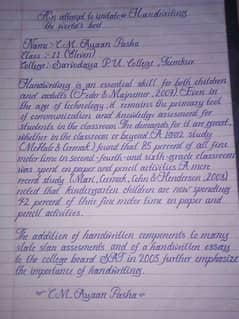 An attempt to update Handwriting
the world's best
Name:- C.M. Ayaan Pasha
Class:- 11 (Eleven)
College:- Sarvodaya P.U. College, Tumkur
Handwriting is an essential skill for both children
and adults (Feder & Majnemer, 2007). Even in
the age of technology, it remains the primary tool
of communication and knowledge assesment for
students in the classroom. The demands for it are great,
whether in the classroom or beyond. A 1992 study
(McHale & Cermak) found that 85 percent of all fine
motor time in second-fourth-and sixth-grade classrooms
was spent on paper and pencil activities. A more
recent study (Marr, Cermak, Cohn & Henderson, 2003)
noted that kindergarten children are now spending
42 percent of their fine motor time on paper and
pencil activities.
The addition of handwritten components to many
state stan assesments and of a handwritten essay
to the college board SAT in 2005 further emphasize
the importance of handwriting.
C.M. Ayaan Pasha